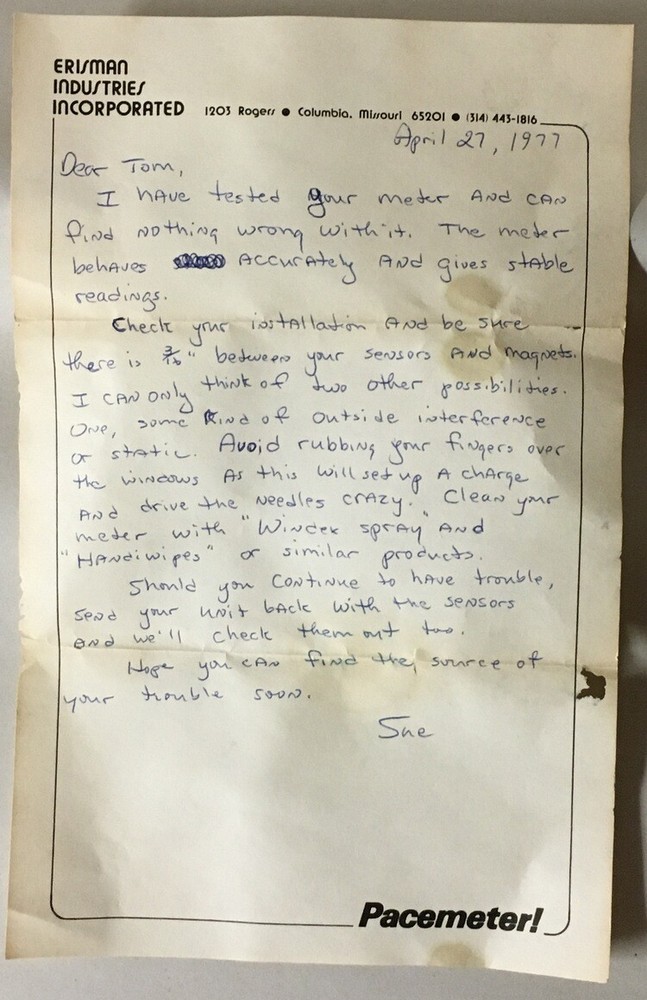 ERISMAN
INDUSTRIES
INCORPORATED 1203 Rogers ● Columbia, Missouri 65201 ● (314) 443-1816
April 27, 1977
Dear Tom,
I have tested your meter and can
find nothing wrong with it. The meter
behaves accurately and gives stable
readings.
Check your installation and be sure
there is 3/16" between your sensors and magnets.
I can only think of two other possibilities.
One, some kind of outside interference
or static. Avoid rubbing your fingers over
the windows as this will set up a charge
and drive the needles crazy. Clean your
meter with "Windex spray" and
"Handiwipes" or similar products.
Should you continue to have trouble,
send your unit back with the sensors
and we'll check them out too.
Hope you can find the source of
your trouble soon.
Sue
Pacemeter!